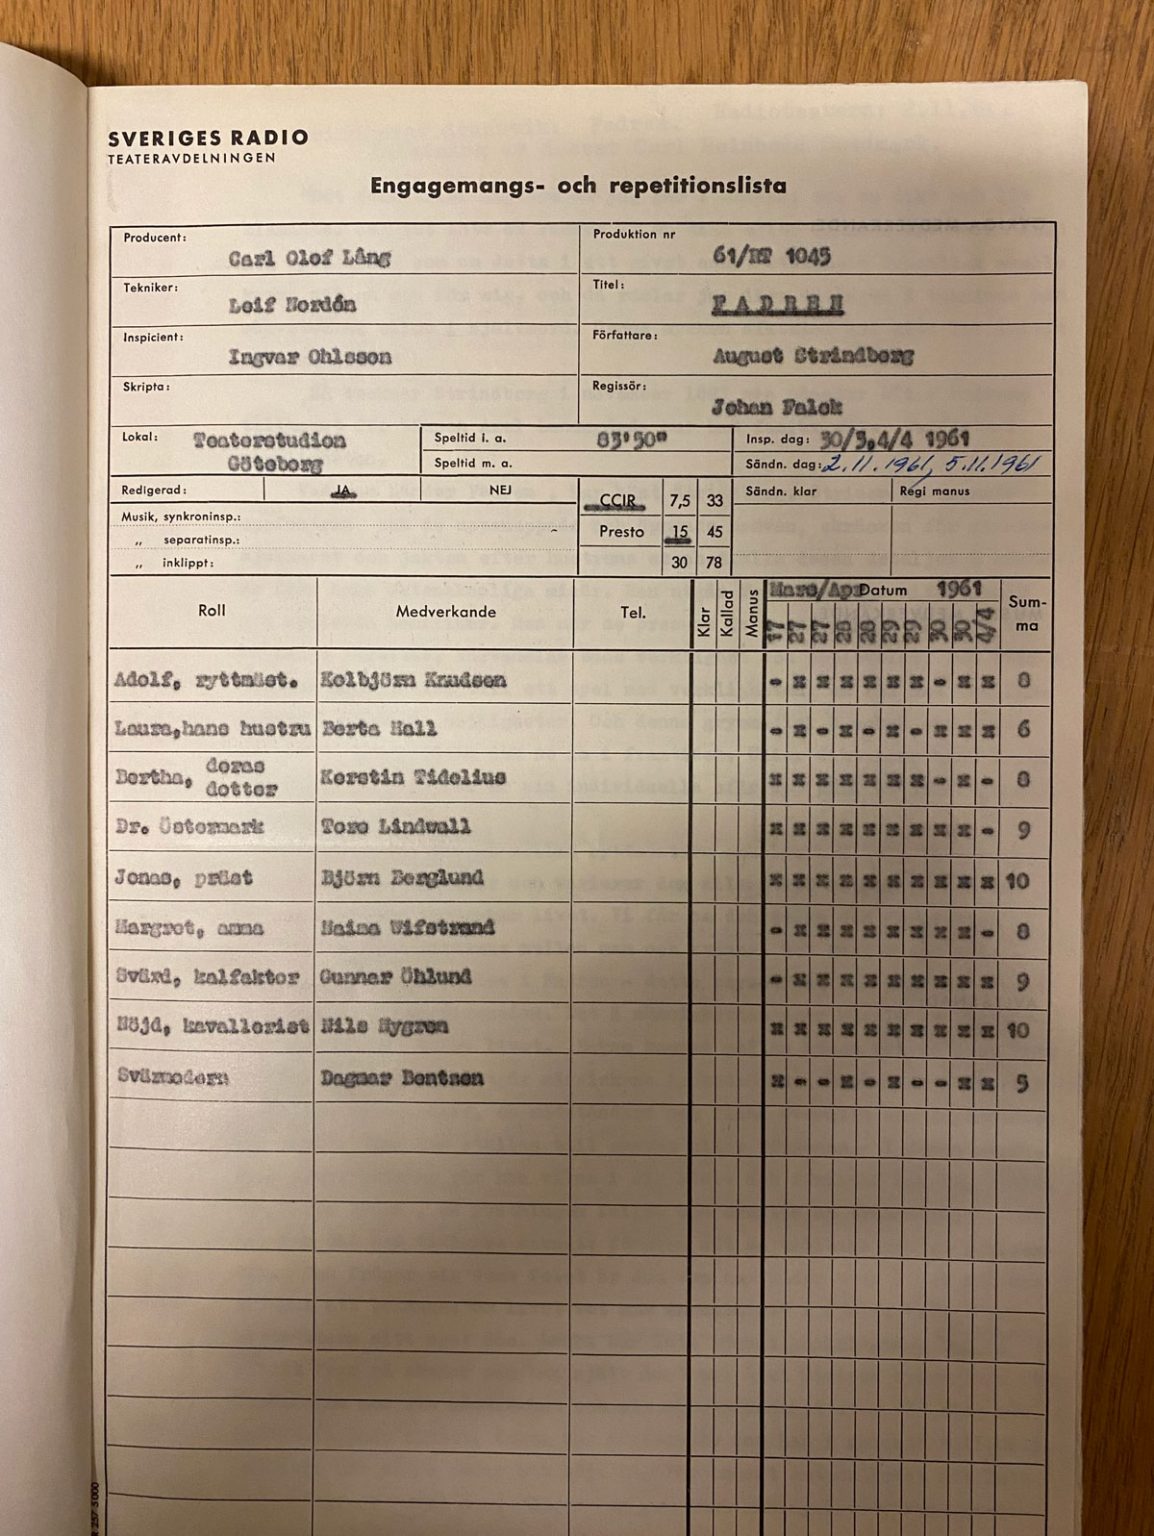 SVERIGES RADIO
TEATERAVDELNINGEN
Engagemangs- och repetitionslista
Producent: Carl Olof Lång
Produktion nr 61/RT 1045
Tekniker: Leif Nordén
Titel: FADREN
Inspicient: Ingvar Ohlsson
Författare: August Strindberg
Skripta:
Regissör: Johan Falck
Lokal: Teaterstudion Göteborg
Speltid i. a. 83'50"
Speltid m. a.
Insp. dag: 30/3,4/4 1961
Sändn. dag: 2.11.1961, 5.11.1961
Redigerad: JA NEJ
CCIR 7,5 33
Sändn. klar Regi manus
Musik, synkroninsp.:
„ separatinsp.:
Presto 15 45
„ inklippt:
30 78
Roll Medverkande Tel. Klar Kallad Manus Mars/Apr Datum 1961 Summa
17 27 27 28 28 29 29 30 30 4/4
Adolf, ryttmäst. Kolbjörn Knudsen - x x x x x x - x x 8
Laura,hans hustru Berta Hall - x - x - x - x x x 6
Bertha, deras dotter Kerstin Tidelius x x x x x x x - x - 8
Dr. Östermark Tore Lindwall x x x x x x x x x - 9
Jonas, präst Björn Berglund x x x x x x x x x x 10
Margret, amma Naima Wifstrand - x x x x x x x x - 8
Svärd, kalfaktor Gunnar Öhlund - x x x x x x x x x 9
Nöjd, kavallerist Nils Nygren x x x x x x x x x x 10
Svärmodern Dagmar Bentzen x - - x - x - - x x 5